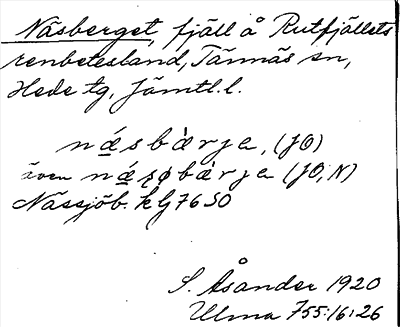 Näsberget, fjäll å Rutfjällets
renbetesland, Tännäs sn,
Hede tg, Jämtl. l.
nǽsbàrja, (JO)
även nǽʂøbàrja (JO, N)
Nässjöb. kbl 76 SO
S. Åsander 1920
Ulma 755:16:26